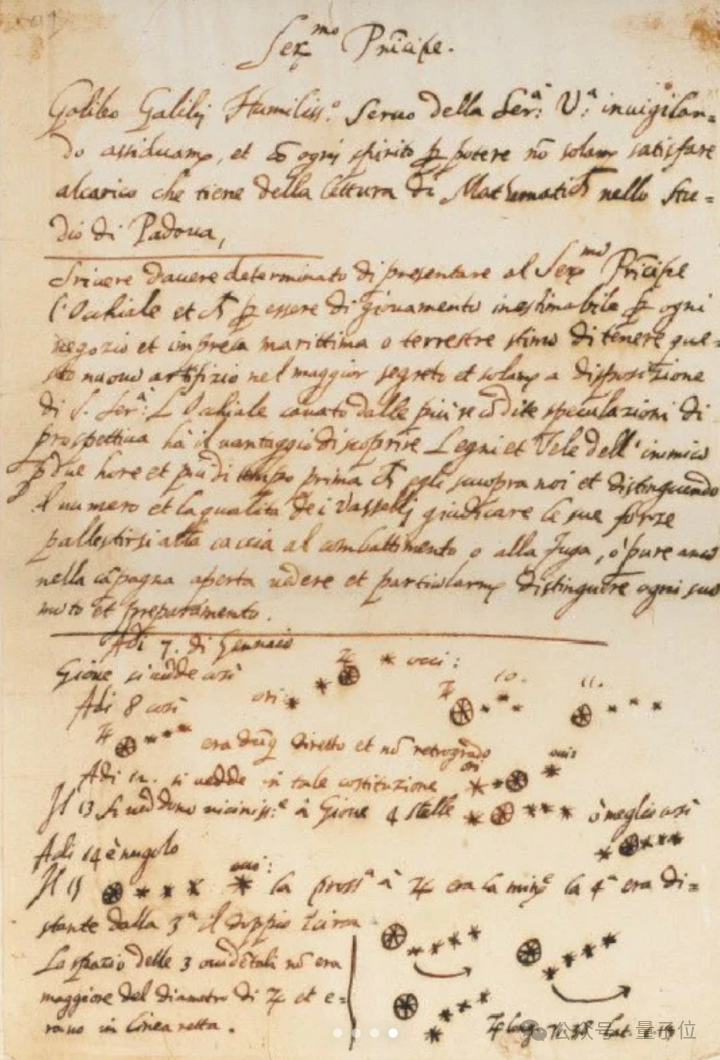 Ser.mo Prīcipe.
Galileo Galilej Humiliss.o Servo della Ser.a V.a invigilan=
do assiduam.te, et cō ogni spirito p potere nō solam.te satisfare
alcarico che tiene della lettura di Mathematich nello Stu=
dio di Padova,
Scrivere davere determinato di presentare al Ser.mo Prīcipe
l'Occhiale et p essere di giovamento inestimabile p ogni
negozio et impresa marittima o terrestre stimo di tenere que=
sto nuovo artifizio nel maggior segreto et solam.te a disposizione
di S. Ser.a L'Occhiale cavato dalle più recōdite speculazioni di
prospettiva ha il vantaggio di scoprire Legni et Vele dell'inimico
p due hore et più di tempo prima ch egli scuopra noi et distinguendo
il numero et la qualità dei Vasselli giudicare le sue forze
pallestirsi alla caccia al combattimento o alla fuga, ò pure anco
nella cāpagna aperta vedere et particolarm.te distinguere ogni suo
moto et preparamento.
Adi 7. di Gennaio
Gione si vedde così ♃ occi:
Adi 8 così ori: ♃ 10. 11.
♃ era dūq diretto et nō retrogrado
Adi 12. si vedde in tale costituzione ori occi
Il 13 si veddono vicinis.e à Giove 4 stelle ò meglio così
Adi 14 è nugolo
Il 15 occi: la pross.a à ♃ era la min.e la 4.a era di=
stante dalla 3.a il doppio
Lo spazio delle 3 occidētali nō era
maggiore del diametro di ♃ et e=
rano in linea retta.
♃ long. 71.38 Lat.
公众号 量子位